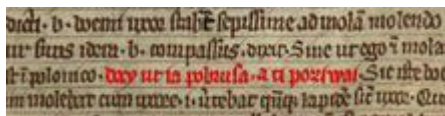 dicti · b · boemi uxor stabat sepissime ad molā molendo
uir suus idem · b · compassus · dixit · Sine ut ego ⁊ mola
st ī polonico · day ut ia pobrusa · a ti poziwai · Sic iste boe
m molebat cum uxore · ⁊ · uertebat lapidē sic̄ uxor · Quo